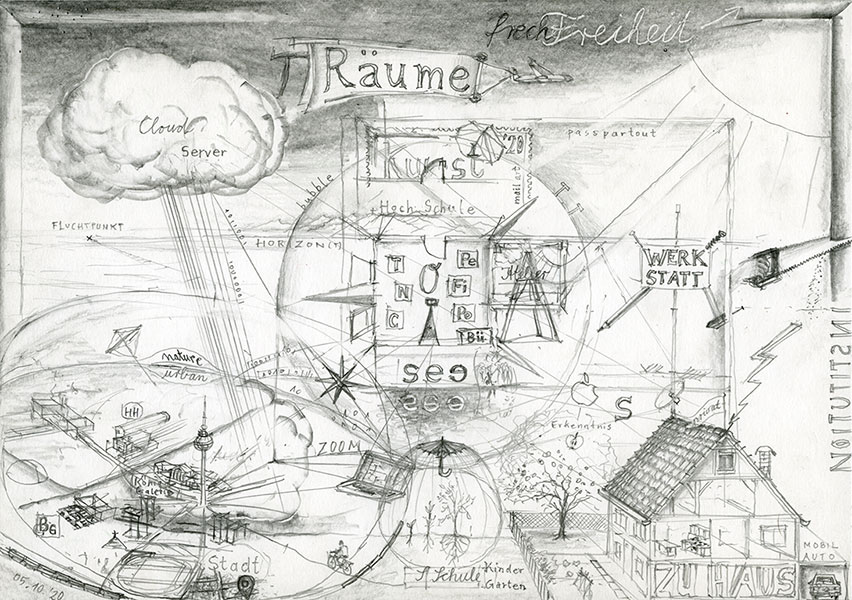 frech Freiheit
Räume
Cloud
Server
passpartout
20
kunst
bubble
mail art
Hoch Schule
FLUCHTPUNKT
HORIZON(T)
WERK
STATT
T
N
C
Pe
Fi
Pe
Bü
Atelier
INSTITUTION
nature
urban
see
see
HH
S
Erkenntnis
ZOOM
privat
König
Galerie
BG
Stadt
Schule
Kinder
Garten
MOBIL
AUTO
ZU HAUS
05.10.'20